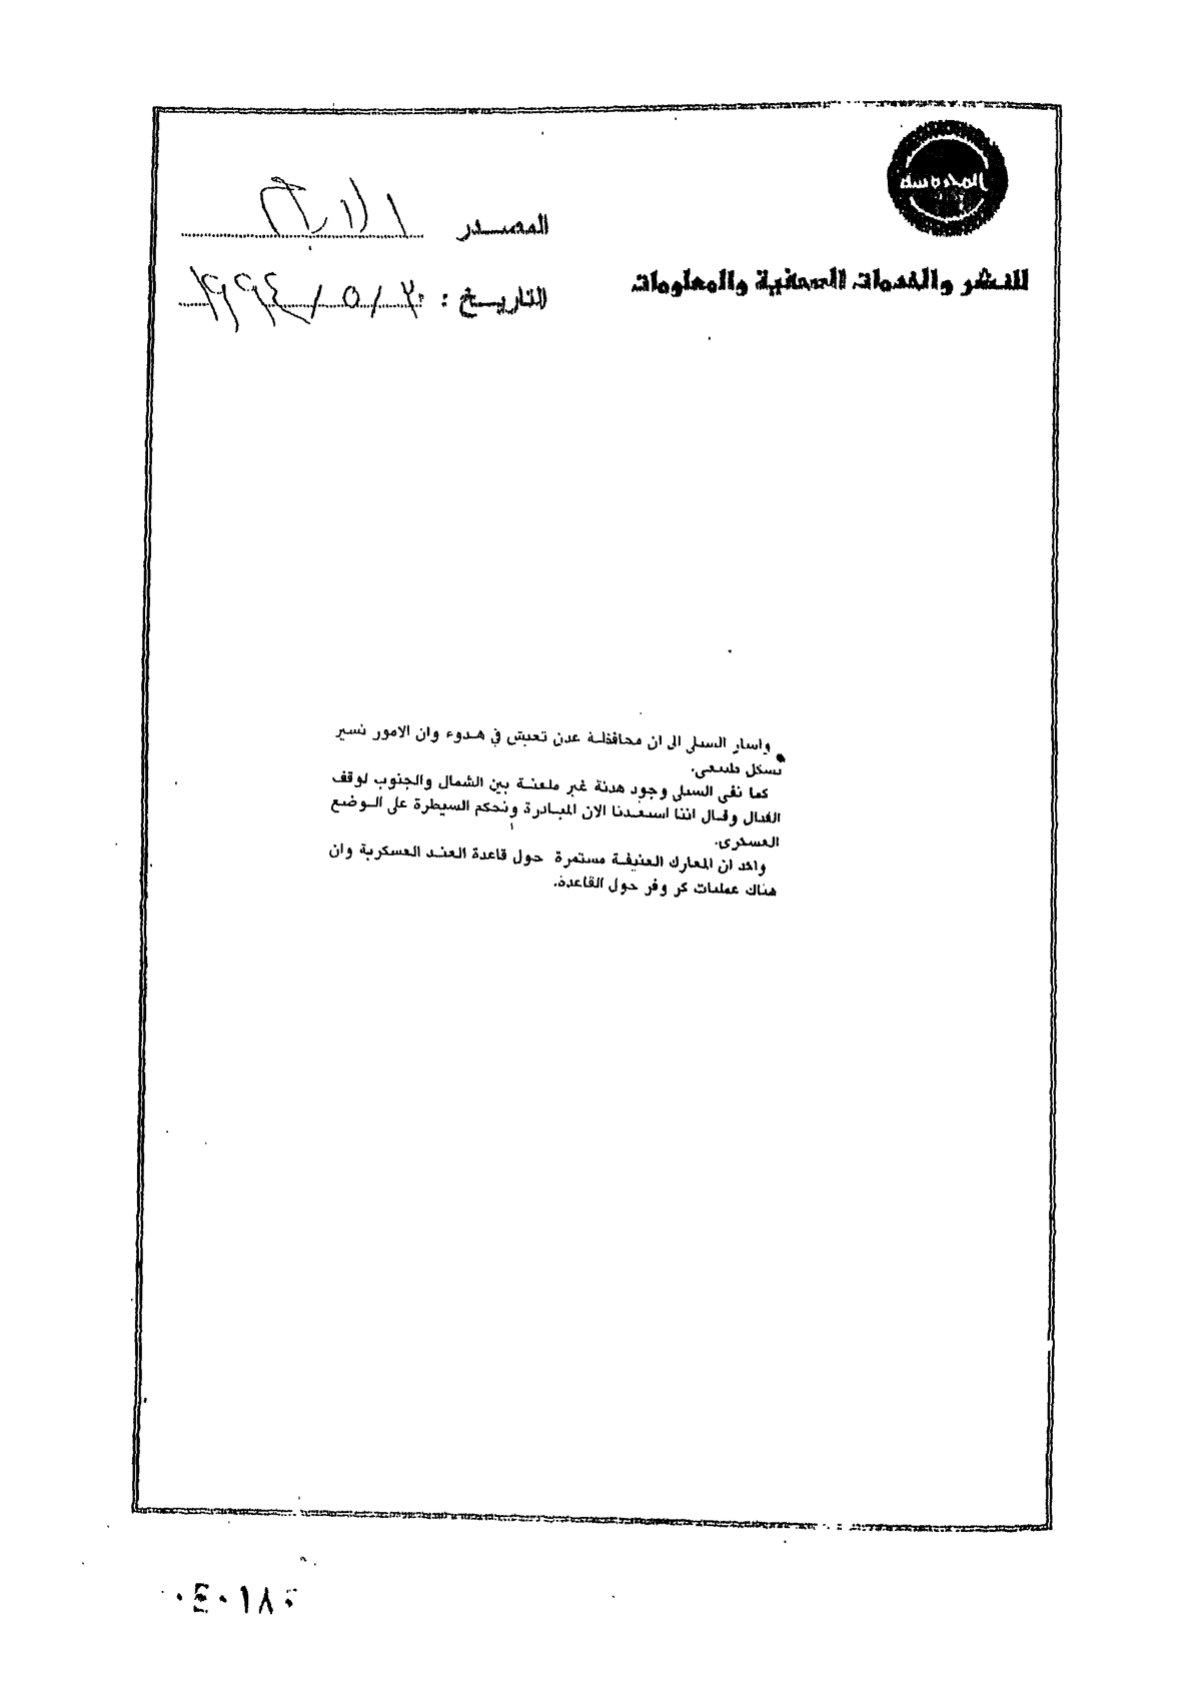 المحروسة
للنشر والخدمات الصحفية والمعلومات
المصدر
التاريخ : ٢٠ / ٥ / ١٩٩٤
واشار السيلى الى ان محافظة عدن تعيش في هدوء وان الامور تسير
بشكل طبيعى.
كما نفى السيلى وجود هدنة غير معلنة بين الشمال والجنوب لوقف
القتال وقال اننا استعدنا الان المبادرة ونحكم السيطرة على الوضع
العسكرى.
واكد ان المعارك العنيفة مستمرة حول قاعدة العند العسكرية وان
هناك عمليات كر وفر حول القاعدة.